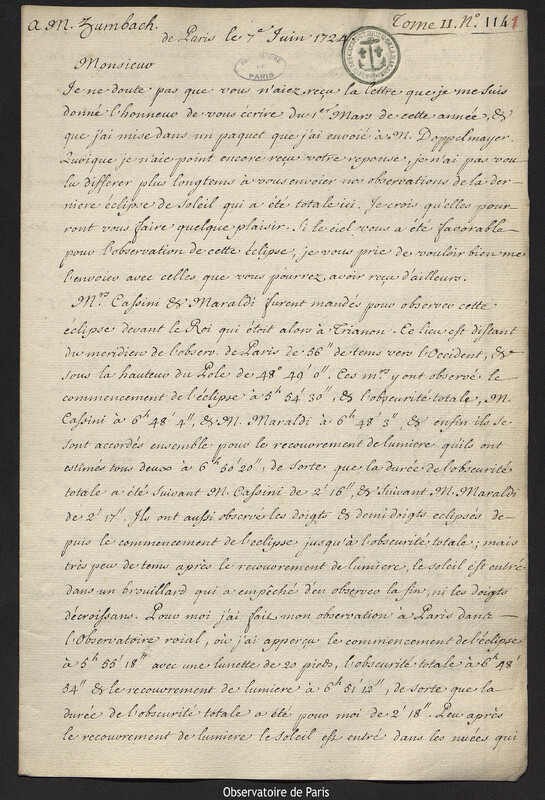 A M. Zumbach.
Tome II. N.° 114
de Paris le 7.e Juin 1724
PARIS
Monsieur
Je ne doute pas que vous n'aiez reçu la lettre que je me suis
donné l'honneur de vous écrire du 1.er Mars de cette année, &
que j'ai mise dans un paquet que j'ai envoié à M. Doppelmayer.
Quoique je n'aie point encore reçu votre reponse, je n'ai pas vou
lu differer plus longtems à vous envoier nos observations de la der-
niere éclipse de Soleil qui a été totale ici. Je crois qu'elles pour-
ront vous faire quelque plaisir. Si le ciel vous a été favorable
pour l'observation de cette éclipse, je vous prie de vouloir bien me
l'envoier avec celles que vous pourrez avoir reçu d'ailleurs.
M.rs Cassini & Maraldi furent mandés pour observer cette
éclipse devant le Roi qui étoit alors à Trianon. Ce lieu est distant
du meridien de l'observ. de Paris de 56'' de tems vers l'Occident, &
sous la hauteur du Pole de 48° 49' 0''. Ces m.rs y ont observé le
commencement de l'éclipse à 5h 54' 30'', & l'obscurité totale, M.
Cassini à 6h 48' 4'', & M. Maraldi à 6h 48' 3'', & enfin ils se
sont accordés ensemble pour le recouvrement de lumiere qu'ils ont
estimés tous deux à 6h 50' 20'', de sorte que la durée de l'obscurité
totale a été suivant M. Cassini de 2' 16'', & suivant M. Maraldi
de 2' 17''. Ils ont aussi observé les doigts & demidoigts eclipsés de-
puis le commencement de l'eclipse jusqu'à l'obscurité totale; mais
très peu de tems après le recouvrement de lumiere, le soleil est entré
dans un brouillard qui a empêché d'en observer la fin, ni les doigts
décroissans. Pour moi j'ai fait mon observation à Paris dans
l'Observatoire roial, où j'ai apperçu le commencement de l'éclipse
à 5h 55' 18'' avec une lunette de 20 pieds, l'obscurité totale à 6h 48'
54'' & le recouvrement de lumiere à 6h 51' 12'', de sorte que la
durée de l'obscurité totale a été pour moi de 2' 18''. Peu après
le recouvrement de lumiere le soleil est entré dans les nuées qui
Observatoire de Paris